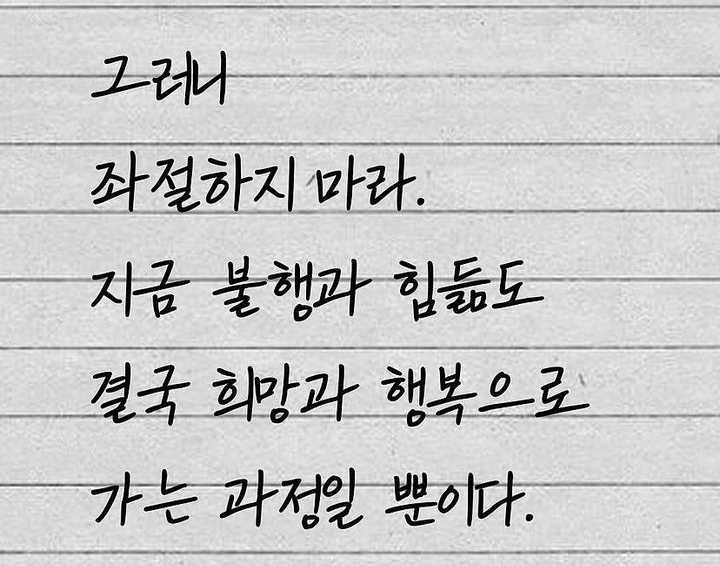 그러니
좌절하지 마라.
지금 불행과 힘듦도
결국 희망과 행복으로
가는 과정일 뿐이다.